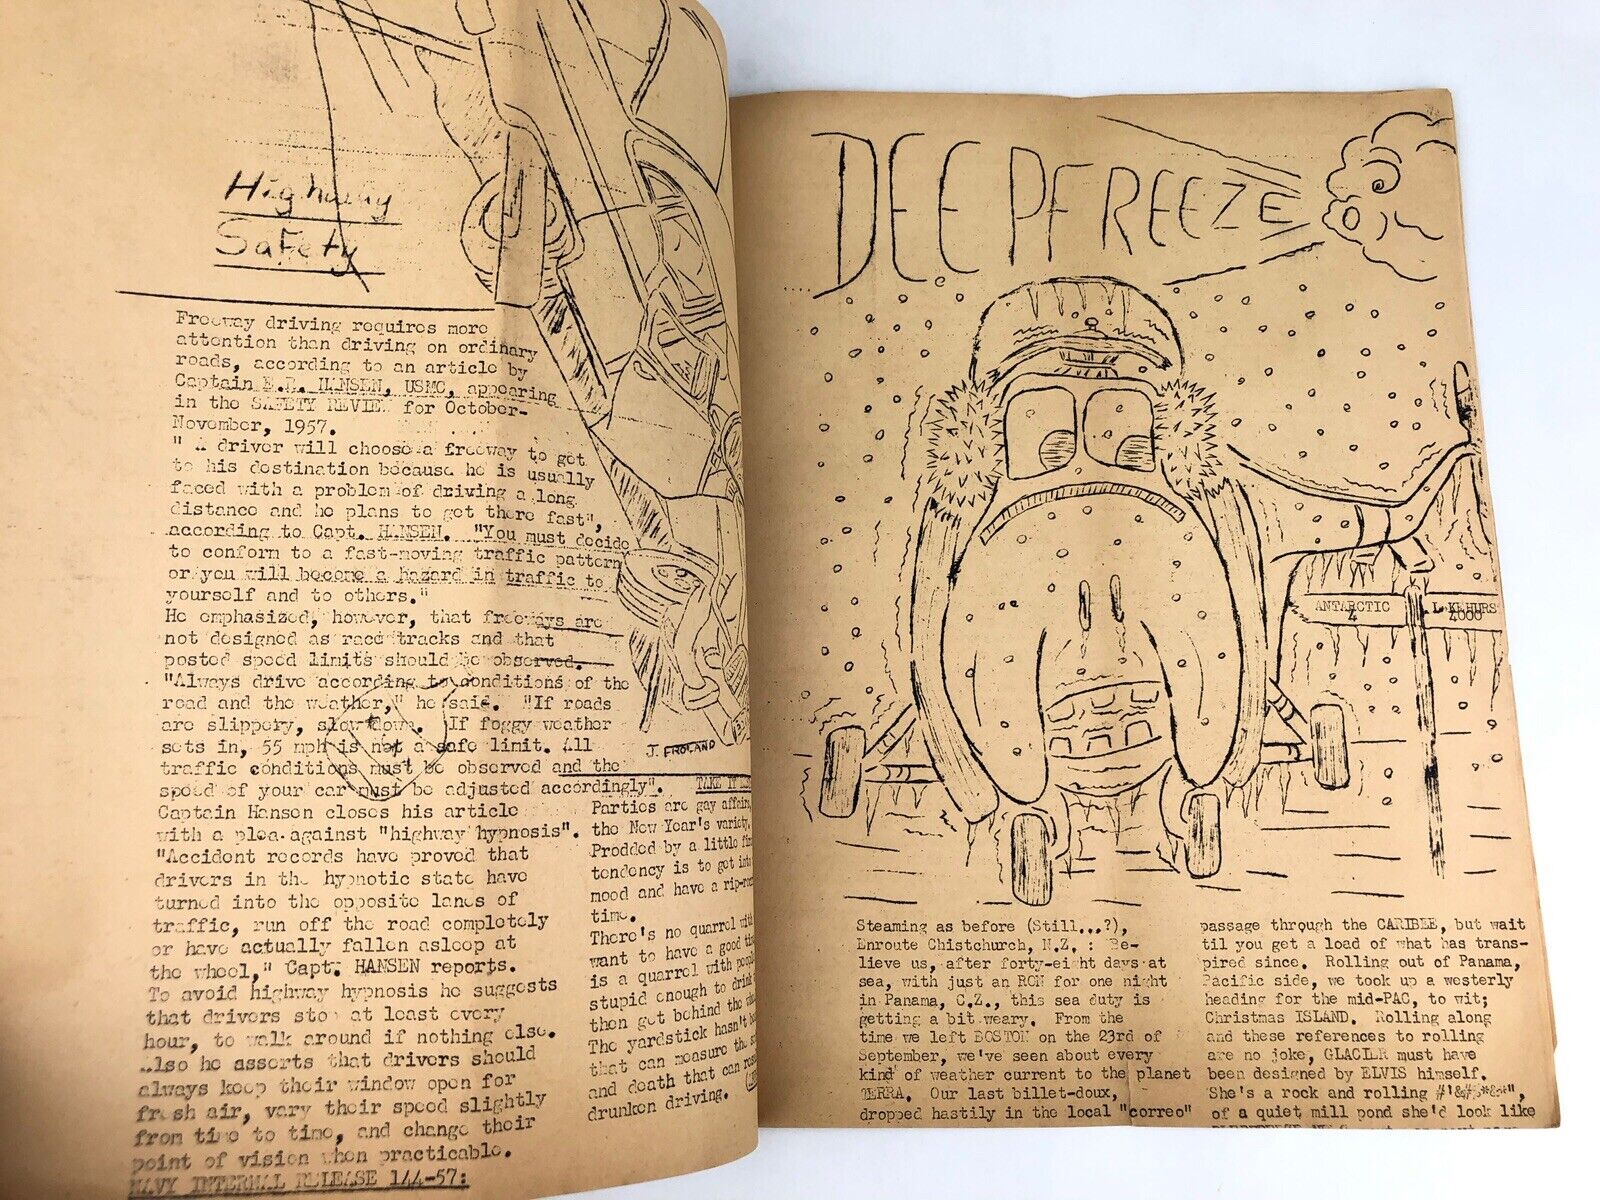 Highway
Safety
Freeway driving requires more
attention than driving on ordinary
roads, according to an article by
Captain HANSEN, USMC, appearing
in the SAFETY REVIEW for October-
November, 1957.
" A driver will choose a freeway to get
to his destination because he is usually
faced with a problem of driving a long
distance and he plans to get there fast",
according to Capt. HANSEN. "You must decide
to conform to a fast-moving traffic pattern
or you will become a hazard in traffic to
yourself and to others."
He emphasized, however, that freeways are
not designed as race tracks and that
posted speed limits should be observed.
"Always drive according to conditions of the
road and the weather," he said. "If roads
are slippery, slow down. If foggy weather
sets in, 55 mph is not a safe limit. All
traffic conditions must be observed and the
speed of your car must be adjusted accordingly".
Captain Hansen closes his article
with a plea against "highway hypnosis".
"Accident records have proved that
drivers in the hypnotic state have
turned into the opposite lanes of
traffic, run off the road completely
or have actually fallen asleep at
the wheel," Capt. HANSEN reports.
To avoid highway hypnosis he suggests
that drivers stop at least every
hour, to walk around if nothing else.
Also he asserts that drivers should
always keep their window open for
fresh air, vary their speed slightly
from time to time, and change their
point of vision when practicable.
NAVY INTERNAL RELEASE 144-57:
J. FROLAND
TAKE IT
Parties are gay affairs,
the New Year's variety.
Prodded by a little
tendency is to get into
mood and have a
time.
There's no quarrel with
want to have a good
is a quarrel with
stupid enough to drink
then get behind the
The yardstick hasn't
that can measure the
and death that can
drunken driving.
DEEPFREEZE
ANTARCTIC
4
4000
Steaming as before (Still...?),
Enroute Chistchurch, N.Z. : Be-
lieve us, after forty-eight days at
sea, with just an RON for one night
in Panama, C.Z., this sea duty is
getting a bit weary. From the
time we left BOSTON on the 23rd of
September, we've seen about every
kind of weather current to the planet
TERRA. Our last billet-doux,
dropped hastily in the local "correo"
passage through the CARIBEE, but wait
til you get a load of what has trans-
pired since. Rolling out of Panama,
Pacific side, we took up a westerly
heading for the mid-PAC, to wit;
Christmas ISLAND. Rolling along
and these references to rolling
are no joke, GLACIER must have
been designed by ELVIS himself.
She's a rock and rolling
of a quiet mill pond she'd look like